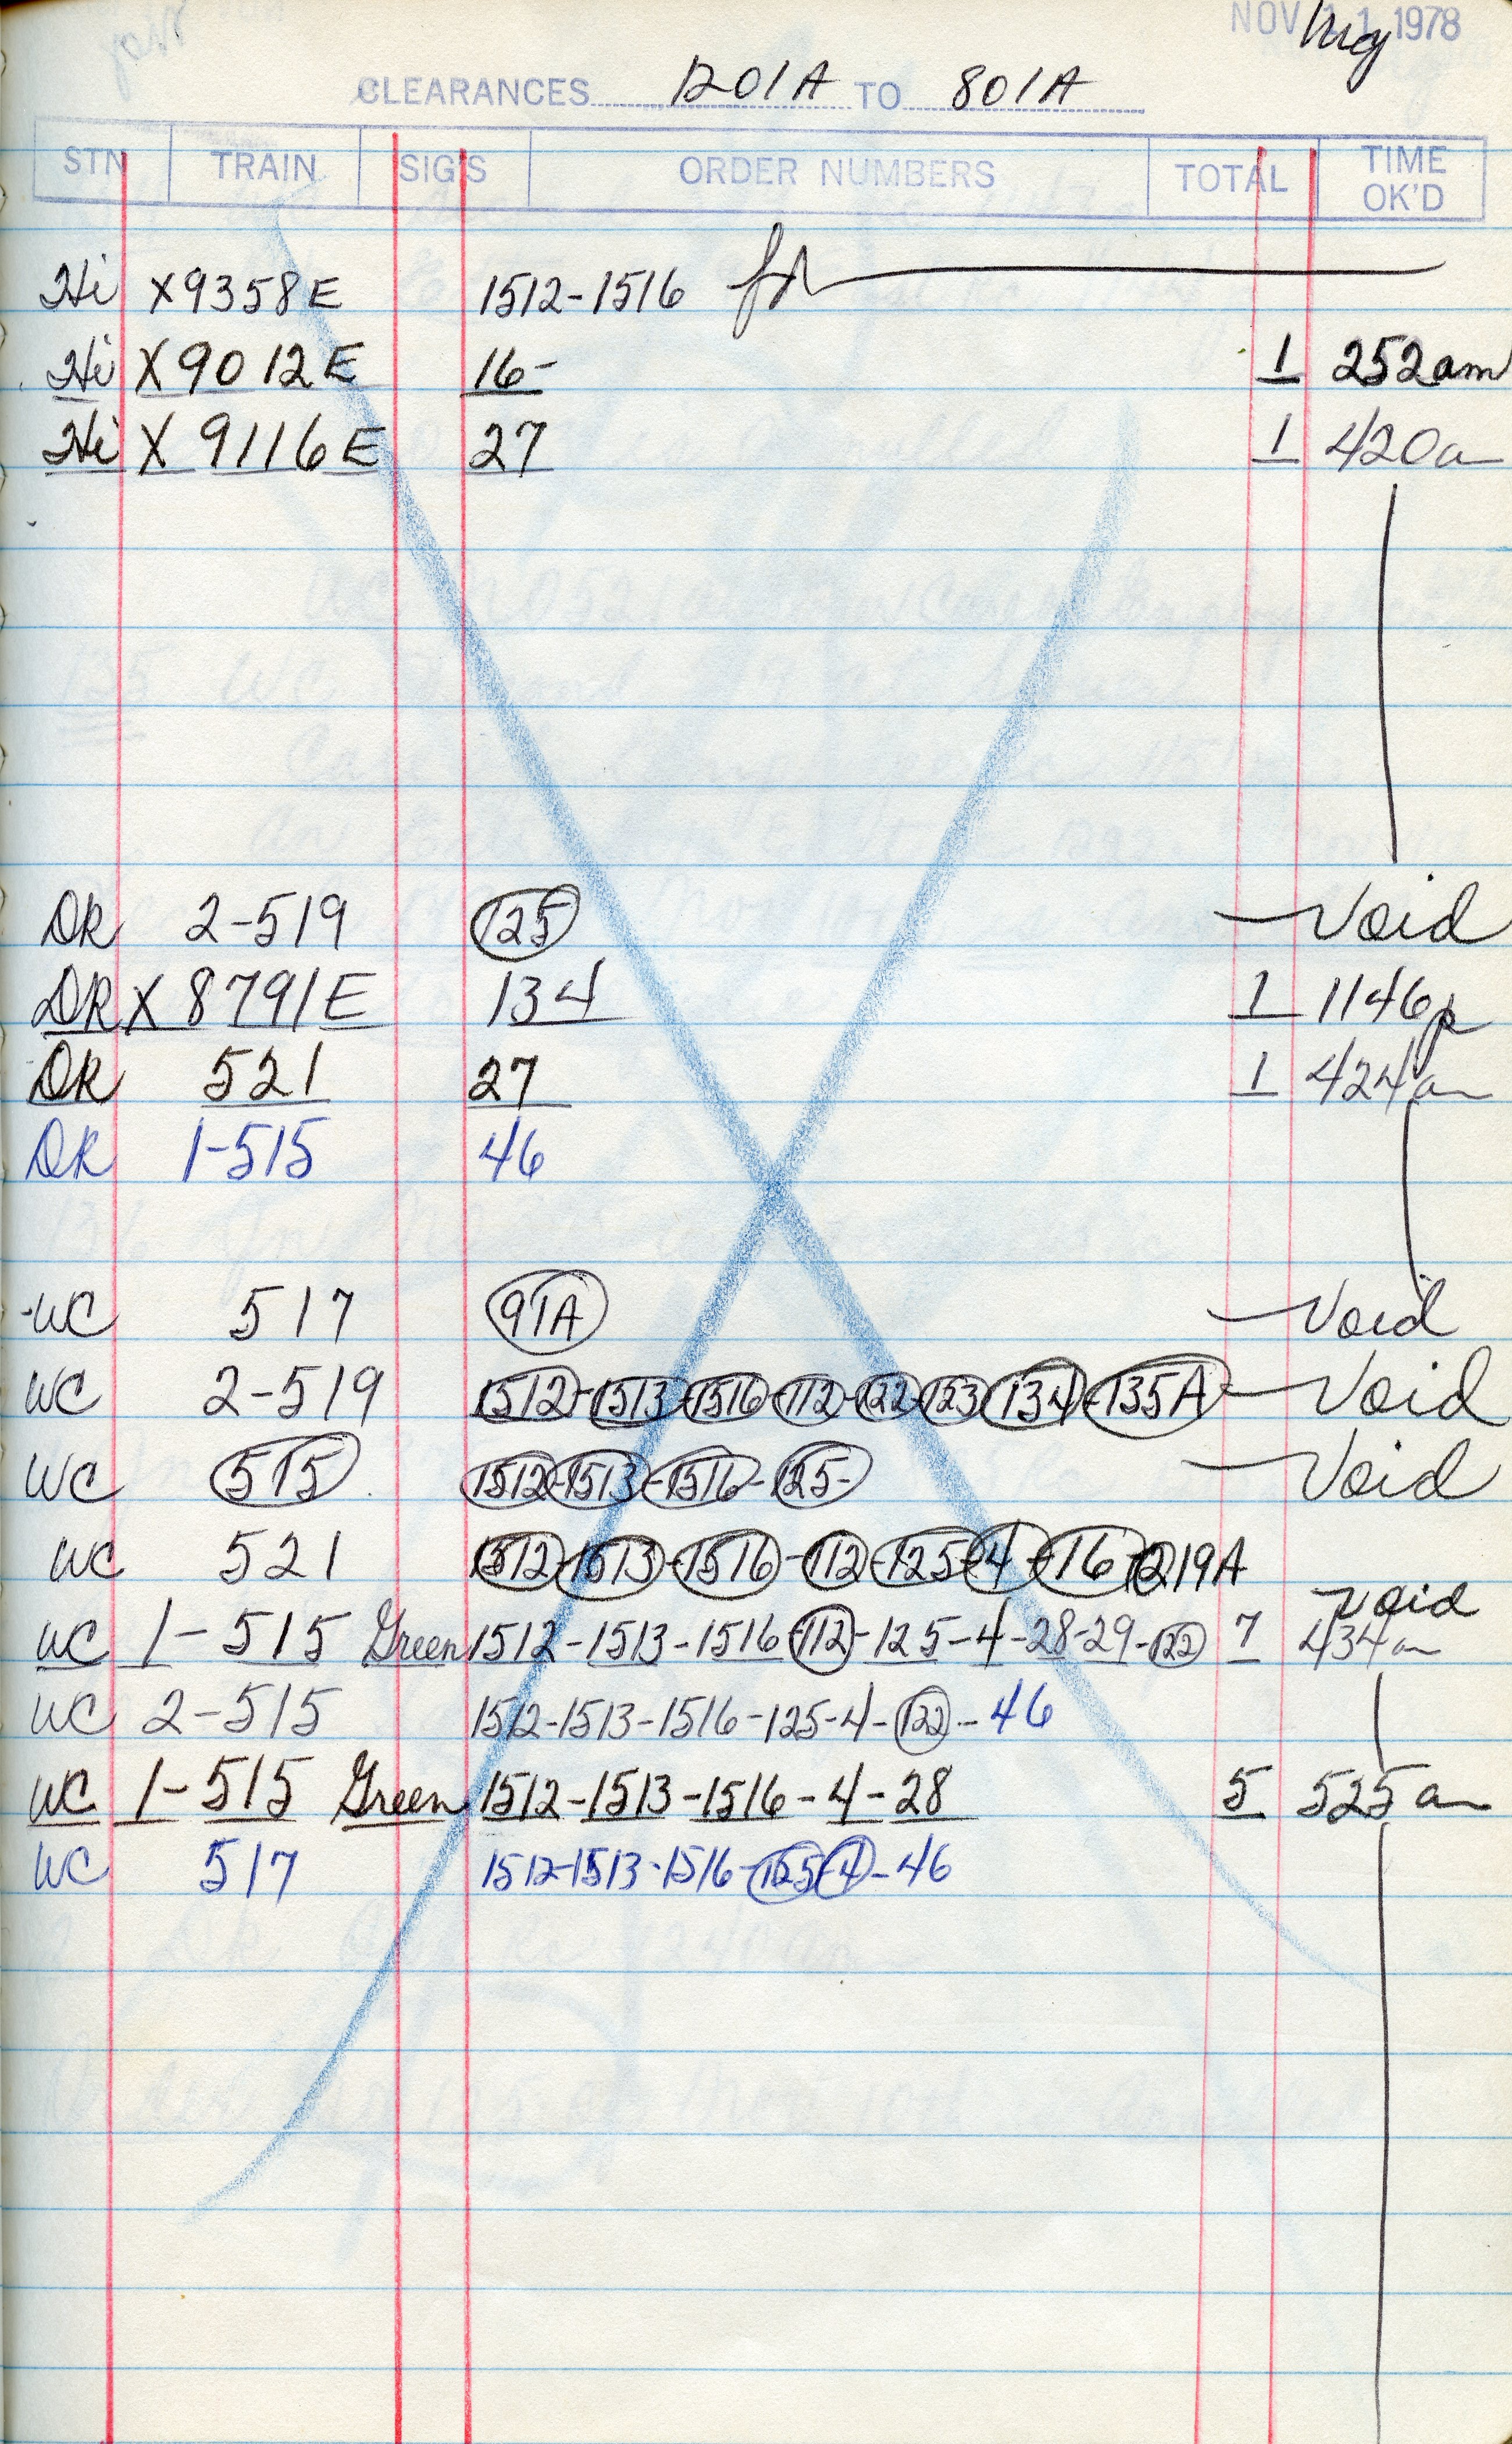 NOV 11 1978
CLEARANCES 1201A TO 801A
STN TRAIN SIG'S ORDER NUMBERS TOTAL TIME OK'D
Hi X9358E 1512-1516
Hi X9012E 16- 1 252am
Hi X 9116E 27 1 420a
DR 2-519 125 Void
DR X 8791E 134 1 1146p
DR 521 27 1 424a
DR 1-515 46
WC 517 91A Void
WC 2-519 1512-1513-1516-112-122-123-134-135A Void
WC 515 1512-1513-1516-125- Void
WC 521 1512-1513-1516-112-125-4-16-219A Void
WC 1-515 Green 1512-1513-1516-112-125-4-28-29-122 7 434a
WC 2-515 1512-1513-1516-125-4-122-46
WC 1-515 Green 1512-1513-1516-4-28 5 525a
WC 517 1512-1513-1516-125-4-46